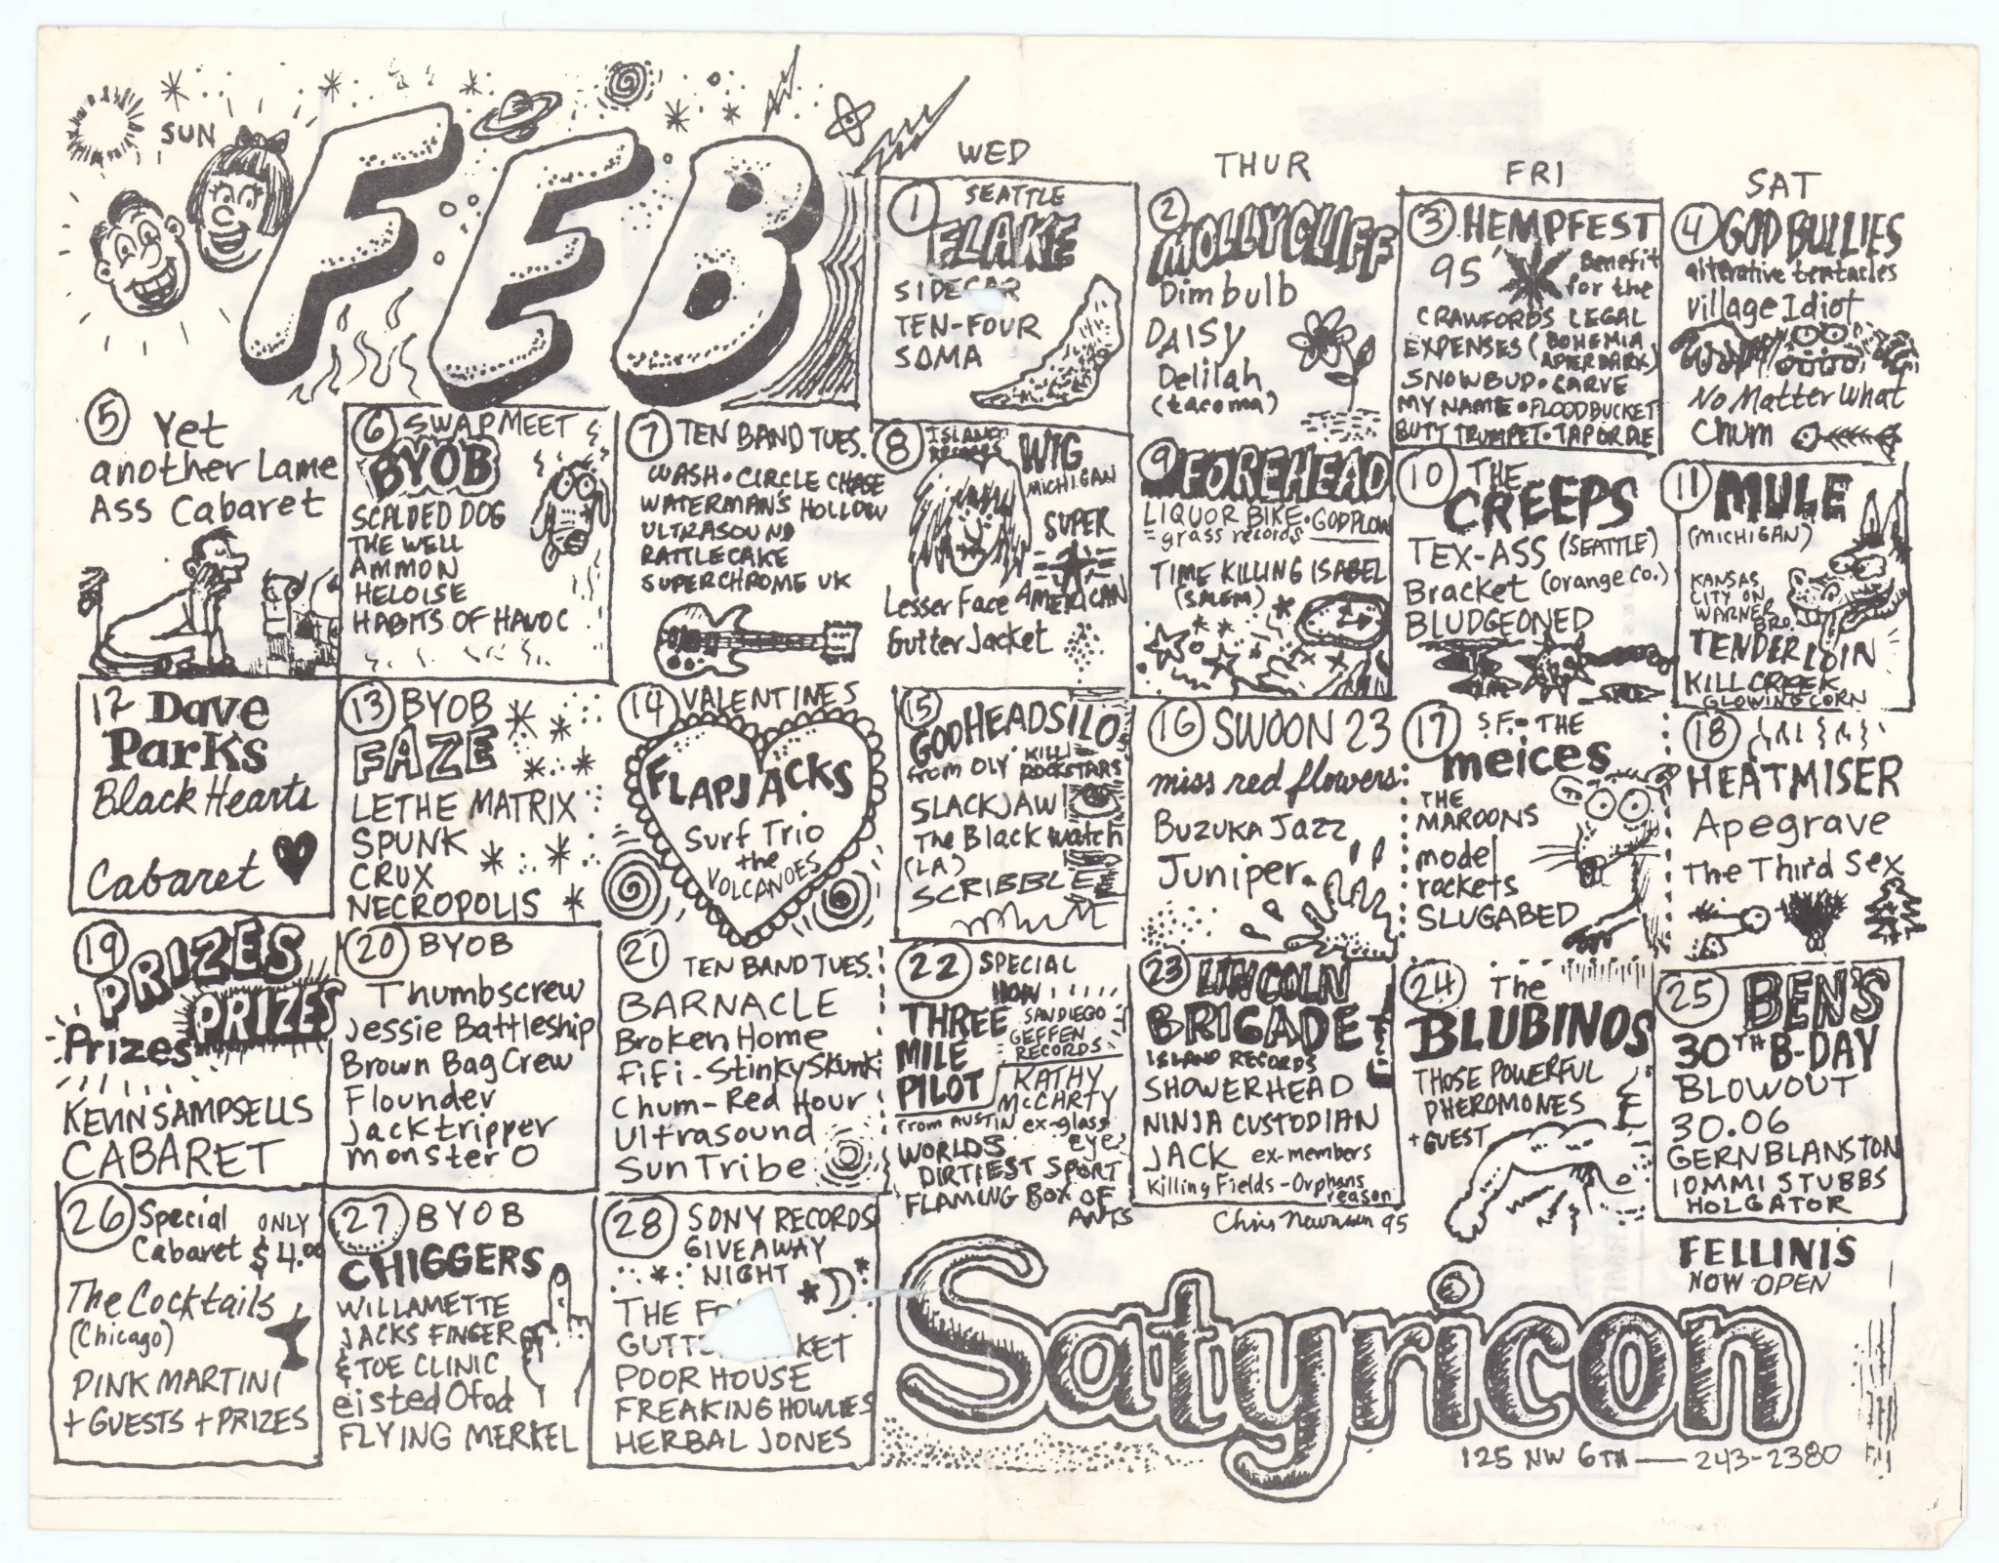 SUN
FEB
WED
THUR
FRI
SAT
1 SEATTLE
FLAKE
SIDECAR
TEN-FOUR
SOMA
2
MOLLYCLIFF
Dimbulb
DAISY
Delilah
(tacoma)
3 HEMPFEST
95' Benefit
for the
CRAWFORDS LEGAL
EXPENSES (BOHEMIA
AFTER DARK)
SNOWBUD • CARVE
MY NAME • FLOODBUCKET
BUTT TRUMPET • TAP OR DIE
4 GOD BULLIES
alterative tentacles
Village Idiot
No Matter What
Chum
5 Yet
another Lame
Ass Cabaret
6 SWAP MEET
BYOB
SCALDED DOG
THE WELL
AMMON
HELOISE
HABITS OF HAVOC
7 TEN BAND TUES.
WASH • CIRCLE CHASE
WATERMAN'S HOLLOW
ULTRASOUND
RATTLECAKE
SUPERCHROME UK
8 ISLAND
RECORDS
WIG
MICHIGAN
SUPER
AMERICAN
Lesser Face
Gutter Jacket
9 FOREHEAD
LIQUOR BIKE • GODPLOW
= grass records
TIME KILLING ISABEL
(SALEM)
10 THE
CREEPS
TEX-ASS (SEATTLE)
Bracket (orange co.)
BLUDGEONED
11 MULE
(MICHIGAN)
KANSAS
CITY ON
WARNER
BRO.
TENDERLOIN
KILL CREEK
GLOWING CORN
12 Dave
Parks
Black Hearts
Cabaret
13 BYOB
FAZE
LETHE MATRIX
SPUNK
CRUX
NECROPOLIS
14 VALENTINES
FLAPJACKS
Surf Trio
the
VOLCANOES
15
GODHEADSILO
from OLY KILL
ROCKSTARS
SLACKJAW
The Black watch
(LA)
SCRIBBLE
16 SWOON 23
miss red flowers
BUZUKA JAZZ
Juniper
17 S.F. - THE
meices
THE
MAROONS
model
rockets
SLUGABED
18
HEATMISER
Apegrave
The Third Sex
19
PRIZES
PRIZES
Prizes
KEVIN SAMPSELLS
CABARET
20 BYOB
Thumbscrew
Jessie Battleship
Brown Bag Crew
Flounder
Jacktripper
monster O
21 TEN BAND TUES.
BARNACLE
Broken Home
fifi - Stinky Skunk
Chum - Red Hour
Ultrasound
Sun Tribe
22 SPECIAL
HOW
THREE
MILE
PILOT
SAN DIEGO
GEFFEN
RECORDS
KATHY
McCARTY
from AUSTIN ex-glass
eye
WORLDS
DIRTIEST SPORT
FLAMING BOX OF
ANTS
23 LINCOLN
BRIGADE
ISLAND RECORDS
SHOWERHEAD
NINJA CUSTODIAN
JACK ex-members
Killing Fields - Orphans
reason
24 The
BLUBINOS
THOSE POWERFUL
PHEROMONES
+ GUEST
25 BEN'S
30TH B-DAY
BLOWOUT
30.06
GERN BLANSTON
IOMMI STUBBS
HOLGATOR
26 Special ONLY
Cabaret $4.00
The Cocktails
(Chicago)
PINK MARTINI
+ GUESTS + PRIZES
27 BYOB
CHIGGERS
WILLAMETTE
JACKS FINGER
& TOE CLINIC
eistedOfod
FLYING MERKEL
28 SONY RECORDS
GIVEAWAY
NIGHT
THE
KET
POOR HOUSE
FREAKING HOWLIES
HERBAL JONES
Chris Newman 95
FELLINIS
NOW OPEN
Satyricon
125 NW 6TH — 243-2380